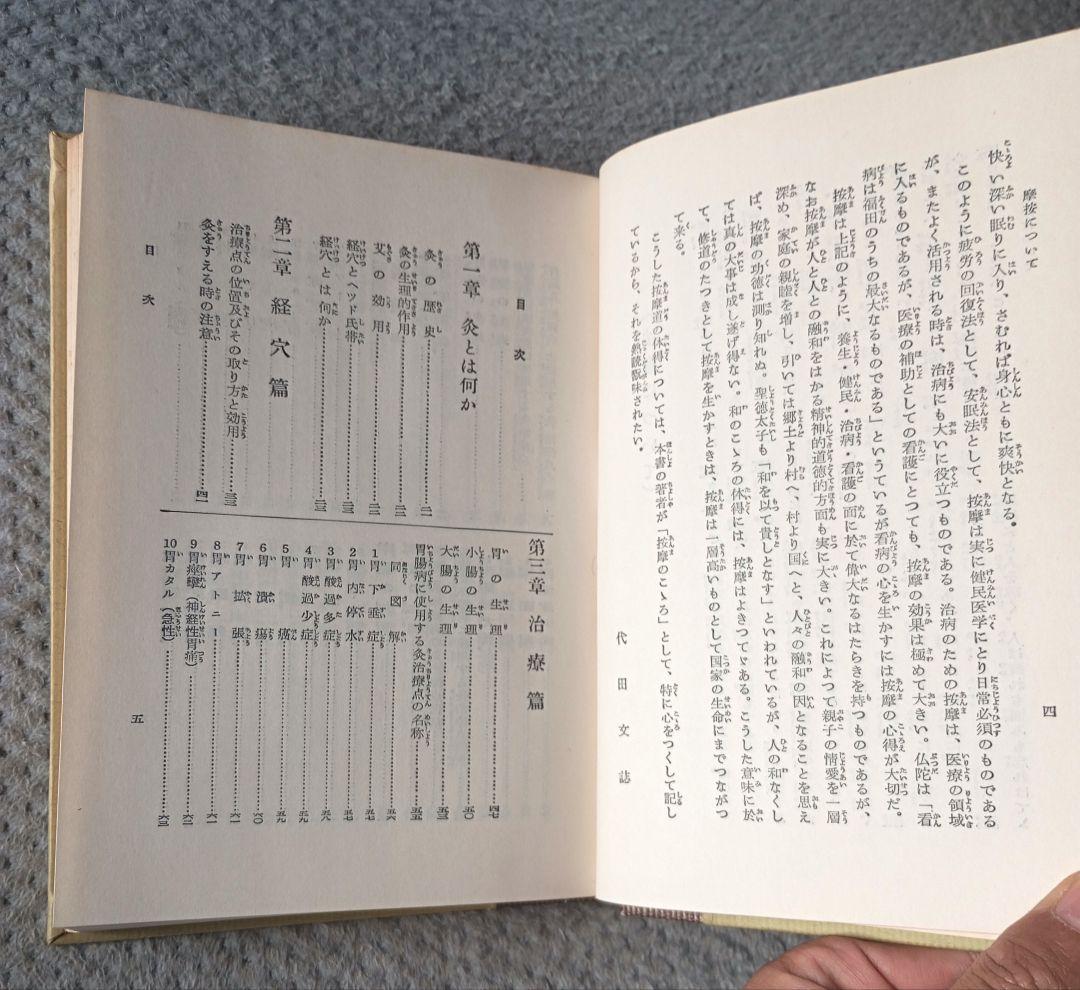 摩按について
快い深い眠りに入り、さむれば身心ともに爽快となる。
このように疲労の回復法として、安眠法として、按摩は実に健民医学にとり日常必須のものである
が、またよく活用される時は、治病にも大いに役立つものである。治病のための按摩は、医療の領域
に入るものであるが、医療の補助としての看護にとつても、按摩の効果は極めて大きい。仏陀は「看
病は福田のうちの最大なるものである」というているが看病の心を生かすには按摩の心得が大切だ。
按摩は上記のように、養生・健民・治病・看護の面に於て偉大なるはたらきを持つものであるが、
なお按摩が人と人との融和をはかる精神的道徳的方面も実に大きい。これによつて親子の情愛を一層
深め、家庭の親睦を増し、引いては郷土より村へ、村より国へと、人々の融和の因となることを思え
ば、按摩の功徳は測り知れぬ。聖徳太子も「和を以て貴しとなす」といわれているが、人の和なくし
ては真の大事は成し遂げ得ない。和のこゝろの休得には、按摩はよきつてゞある。こうした意味に於
て、修道のたつきとして按摩を生かすときは、按摩は一層高いものとして国家の生命にまでつながつ
て来る。
こうした按摩道の休得については、本書の著者が「按摩のこゝろ」として、特に心をつくして記し
ているから、それを熟読翫味されたい。
代田文誌
四
目次
第一章 灸とは何か
灸の歴史……二一
灸の生理的作用……二二
艾の効用……二二
経穴とヘツド氏帯……二三
経穴とは何か……二三
第二章 経穴篇
治療点の位置及びその取り方と効用……三三
灸をすえる時の注意……四一
第三章 治療篇
胃の生理……四七
小腸の生理……五〇
大腸の生理……五三
胃腸病に使用する灸治療点の名称……五五
同図解……五六
1 胃下垂症……五七
2 胃内停水……五七
3 胃酸過多症……五八
4 胃酸過少症……五九
5 胃癌……五九
6 胃潰瘍……六〇
7 胃拡張……六一
8 胃アトニー……六一
9 胃痙攣(神経性胃痛)……六二
10 胃カタル(急性)……六三
目次
五